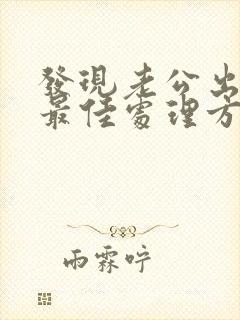 發現老公出
最佳處理方
雨霖咛